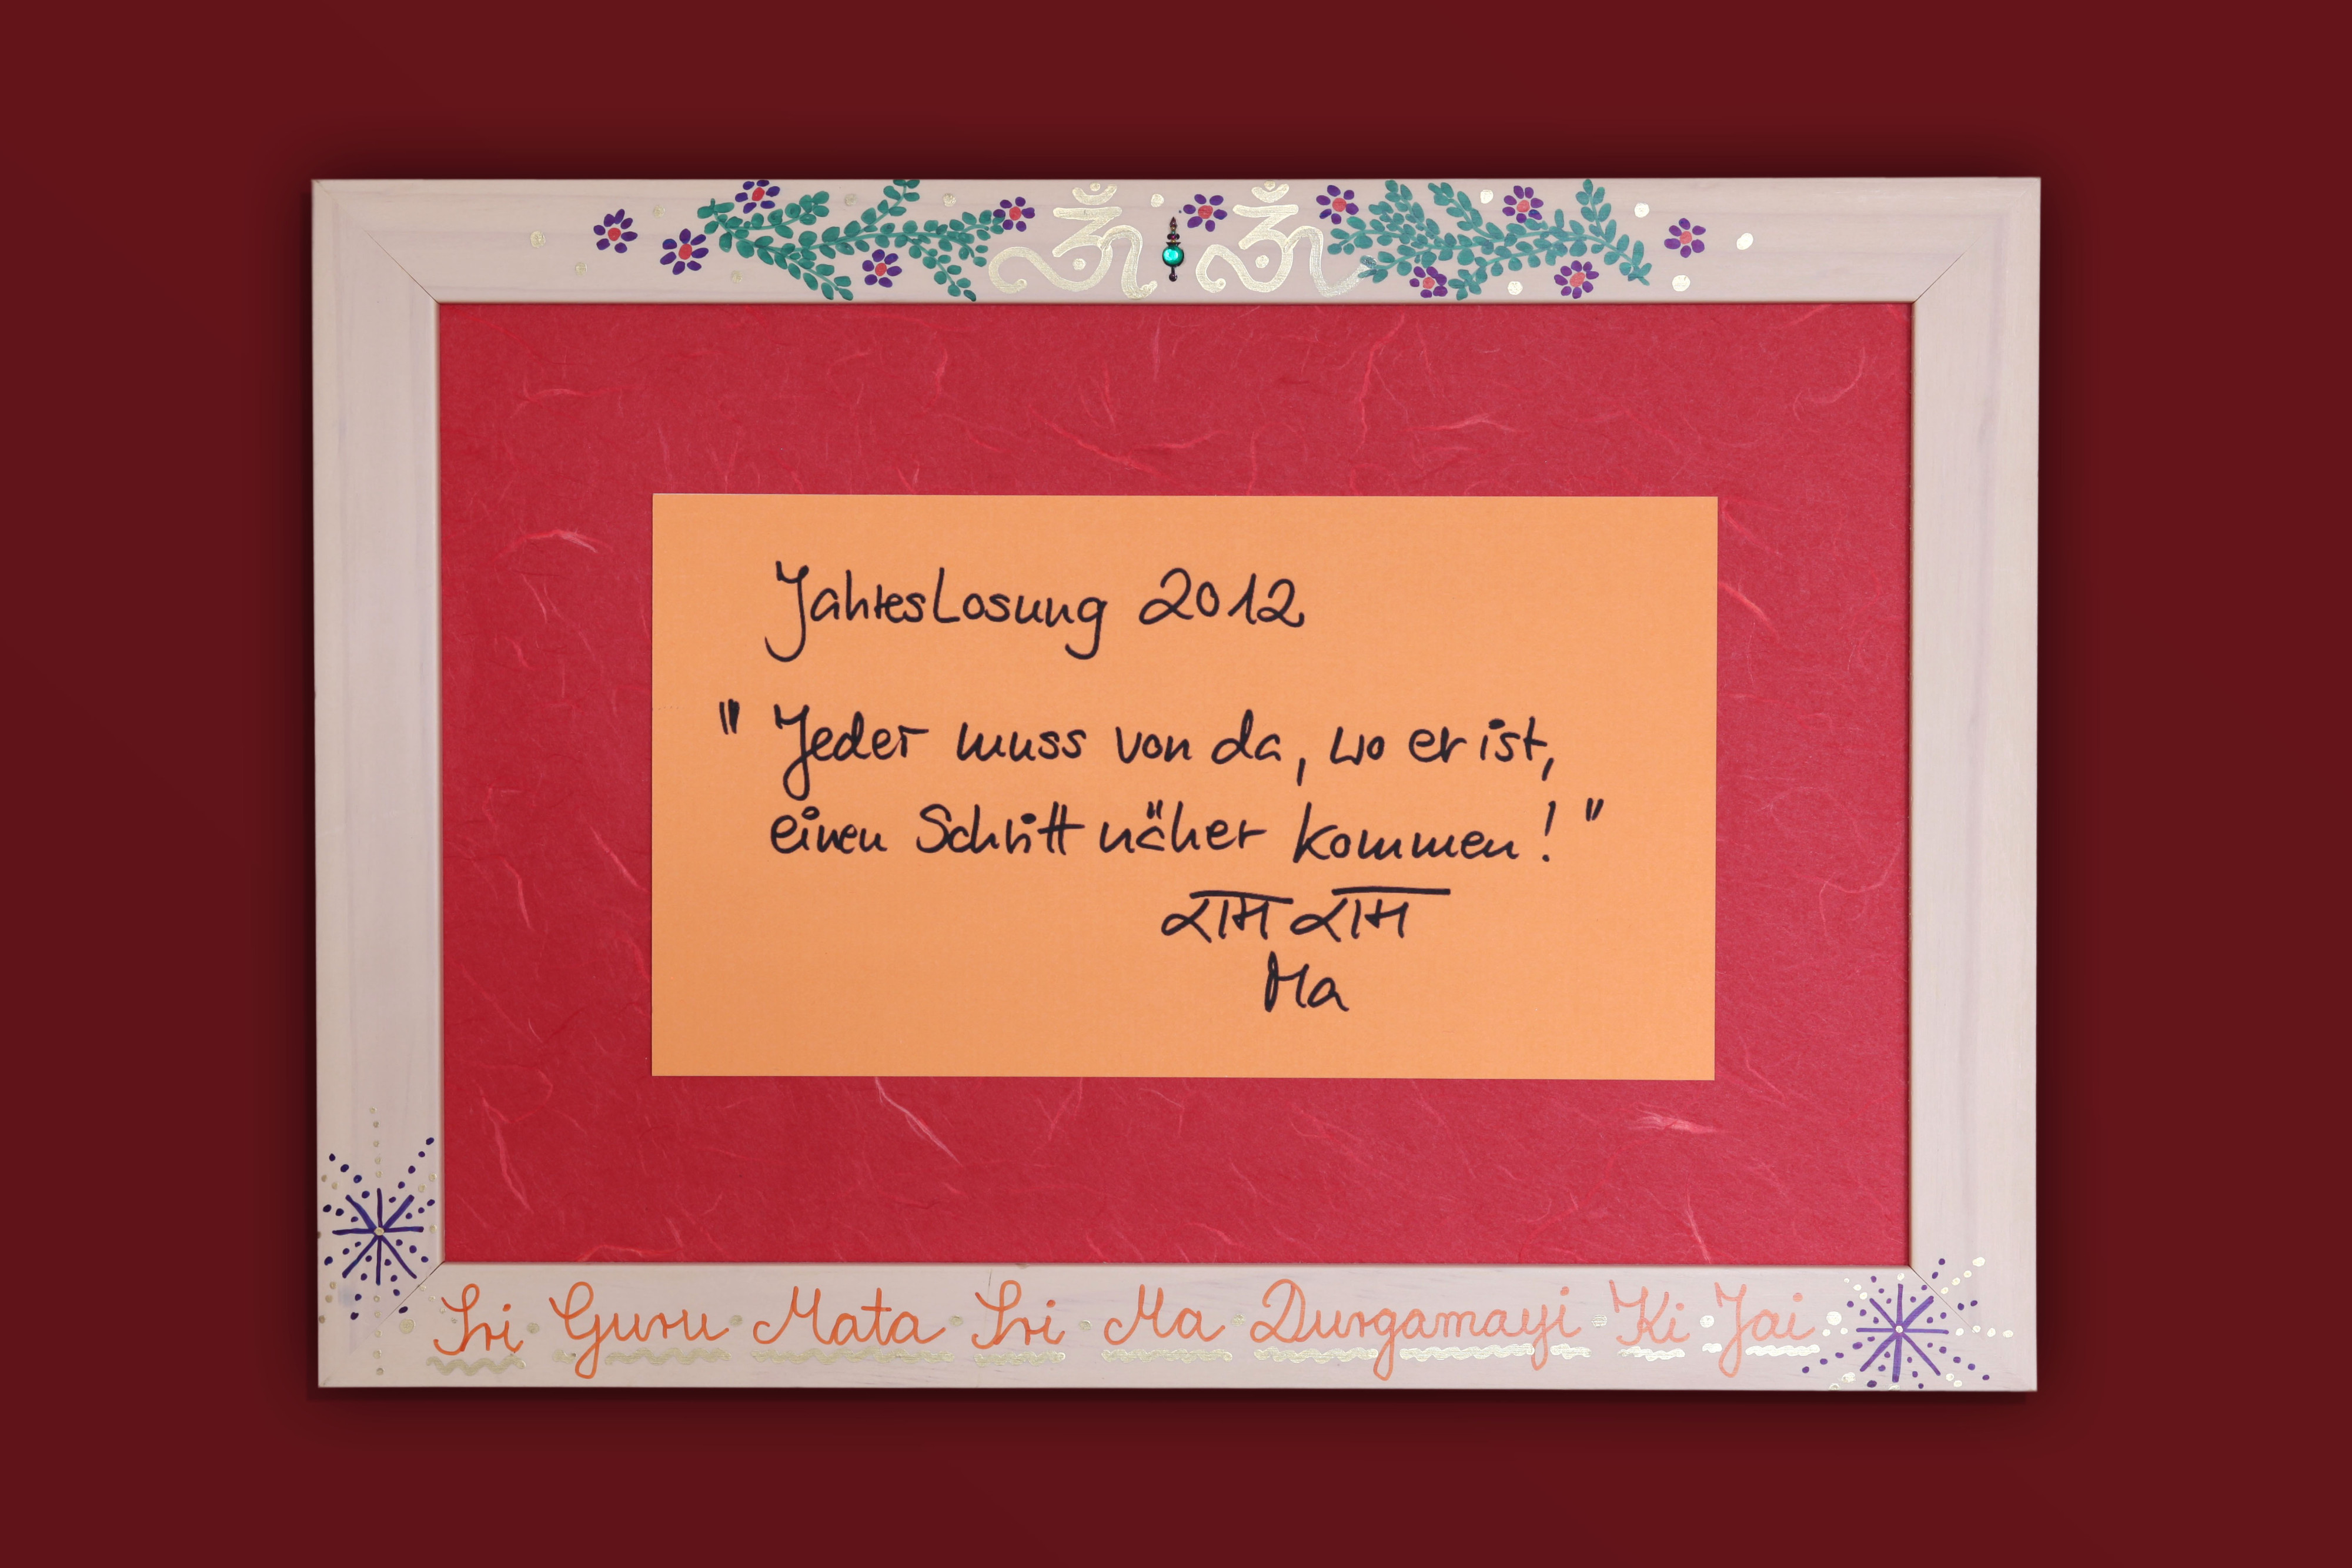 ॐ ॐ
JahresLosung 2012
" Jeder muss von da, wo er ist,
einen Schritt näher kommen! "
राम राम
Ma
Sri • Guru • Mata • Sri • Ma • Durgamayi • Ki • Jai